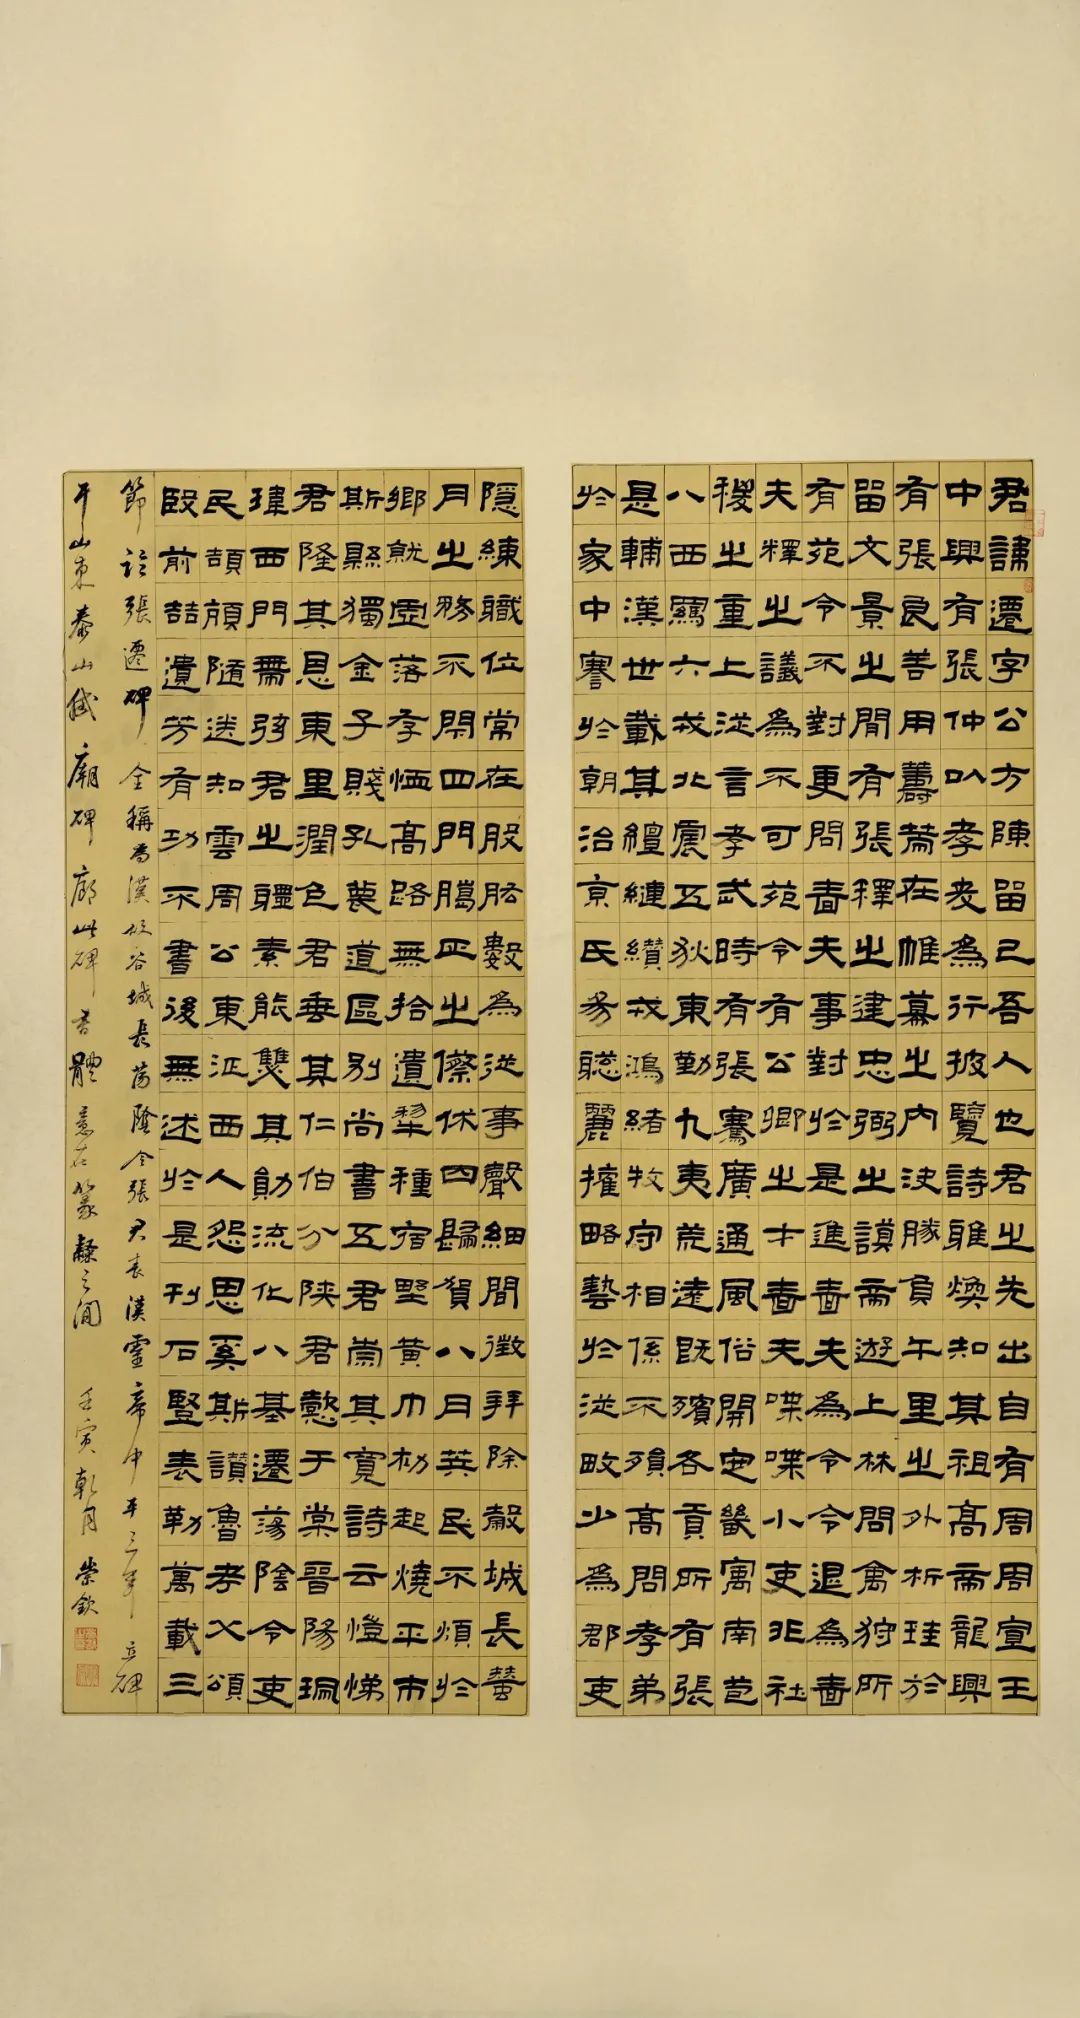 君諱遷字公方陳留己吾人也君之先出自有周周宣王
中興有張仲以孝友為行披覽詩雅煥知其祖高帝龍興
有張良善用籌策在帷幕之內決勝負千里之外析珪於
留文景之間有張釋之建忠弼之謨帝遊上林問禽狩所
有苑令不對更問嗇夫事對於是進嗇夫為令令退為嗇
夫釋之議為不可苑令有公卿之才嗇夫喋喋小吏非社
稷之重上從言孝武時有張騫廣通風俗開定畿寓南苞
八西羈六戎北震五狄東勤九夷荒遠既殯各貢所有張
是輔漢世載其繵縺纘戎鴻緒牧守相係不殞高問孝弟
於家中謇於朝治京氏易聰麗權略藝於從畋少為郡吏
隱練職位常在股肱數為從事聲細聞徵拜除穀城長蠶
月之務不閉四門臘正之僚休囚歸賀八月筭民不煩於
鄉就虛落存恤高路無拾遺犁種宿野黃巾初起燒平市
斯縣獨全子賤孔蔑道區別尚書五君崇其寬詩云愷悌
君隆其恩東里潤色君垂其仁伯分陝君懿于棠晉陽珮
瑋西門帶弦君之體素能雙其勛流化八基遷蕩陰令吏
民頡頏隨送如雲周公東征西人怨思奚斯讚魯考父頌
殷前喆遺芳有功不書後無述於是刊石豎表勒萬載三
節臨張遷碑 全稱為漢故谷城長蕩陰令張君表漢靈帝中平三年立碑
于山東泰山岱廟碑廊此碑書體意在篆隸之間 壬寅乾月 崇欽